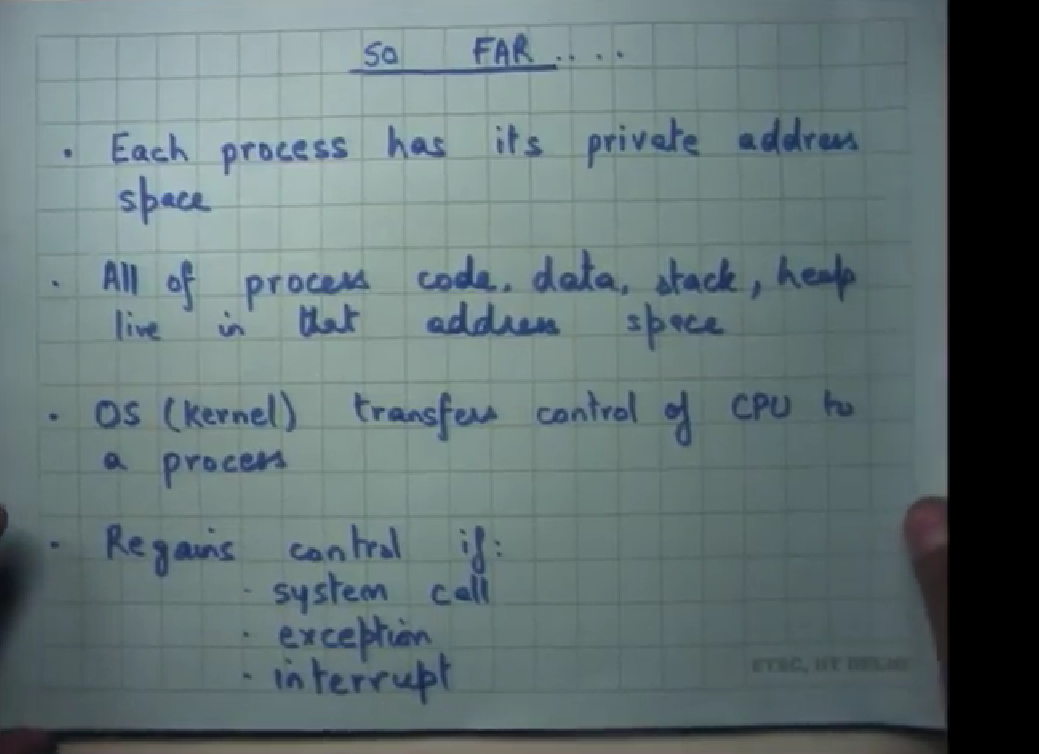 SO FAR ....
• Each process has its private address
space
• All of process code, data, stack, heap
live in that address space
• OS (kernel) transfers control of CPU to
a process
• Regains control if:
• system call
• exception
• interrupt
ETSC, IIT DELHI